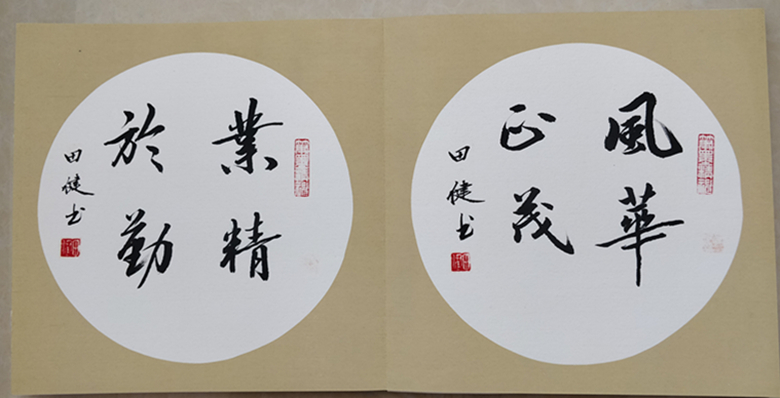 風華
正茂
田健书
業精
於勤
田健书